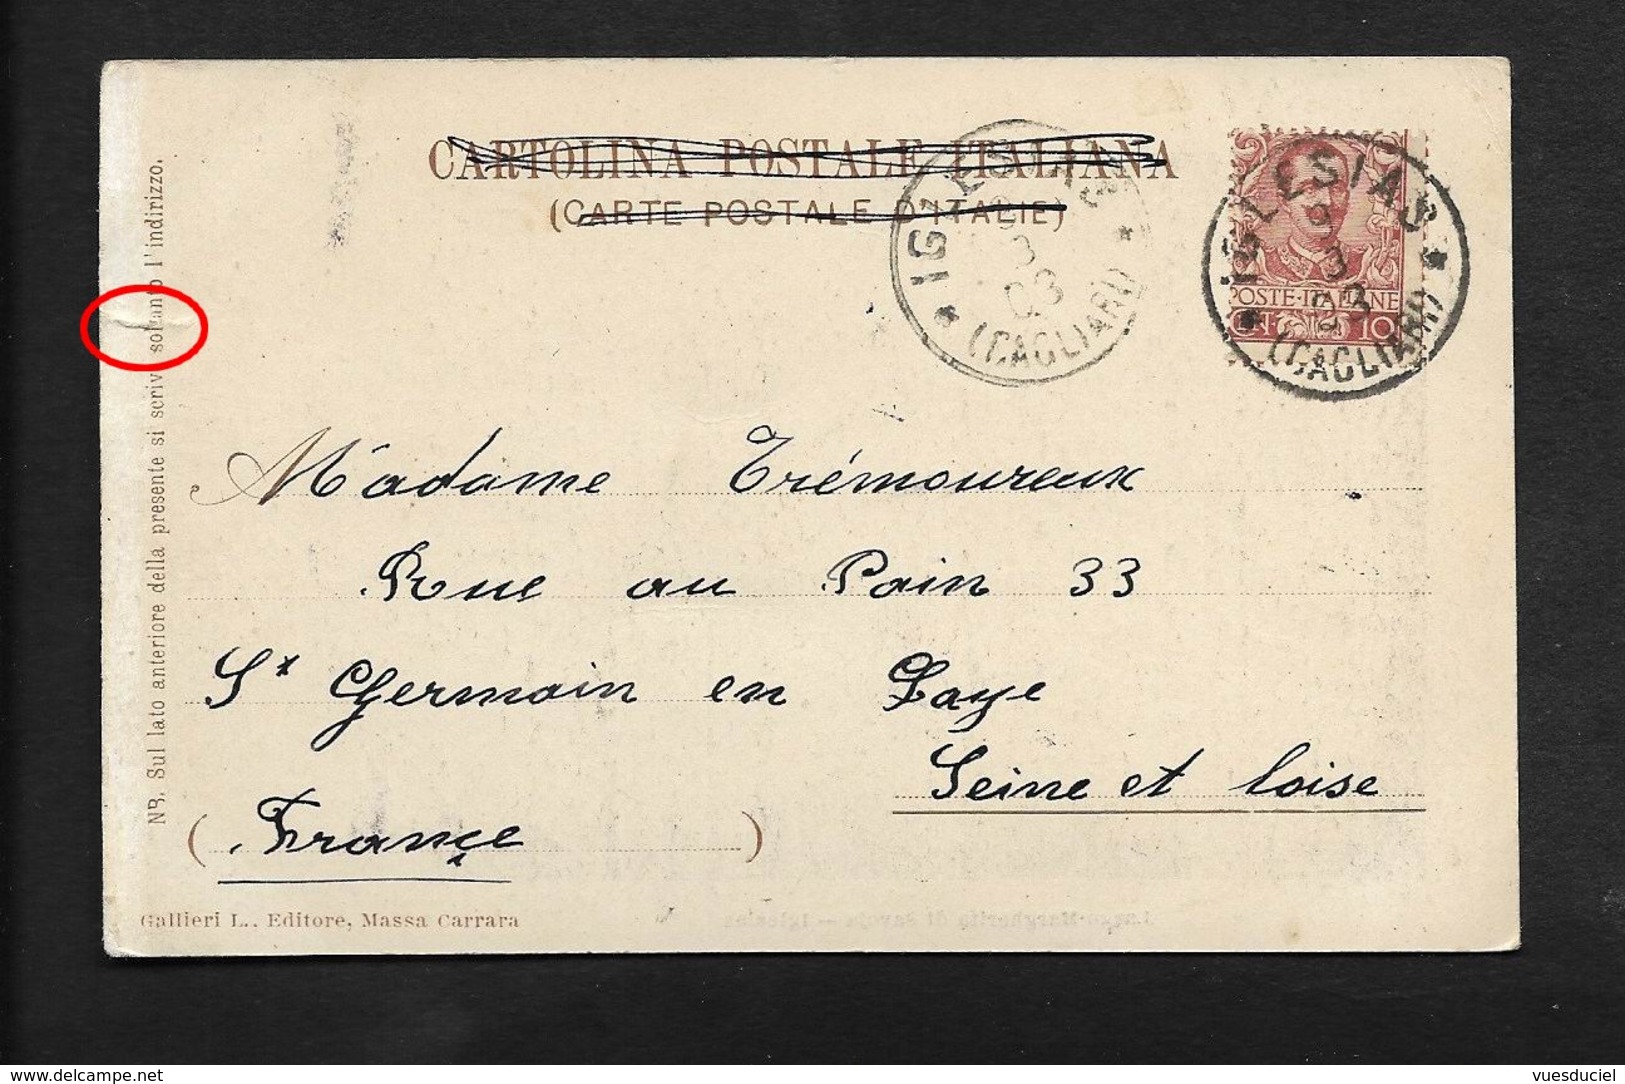 CARTOLINA POSTALE ITALIANA
(CARTE POSTALE D'ITALIE)
IGLESIAS
9
3
03
(CAGLIARI)
IGLESIAS
9
3
03
(CAGLIARI)
POSTE·ITALIANE
10
NB. Sul lato anteriore della presente si scrive soltanto l'indirizzo.
Madame Trémoureux
Rue au Pain 33
St Germain en Laye
Seine et Loise
(France)
Gallieri L., Editore, Massa Carrara
delcampe.net
vuesduciel